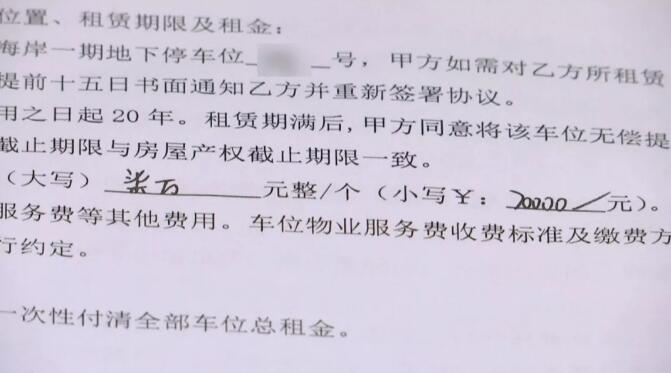 位置、租赁期限及租金：
海岸一期地下停车位 号，甲方如需对乙方所租赁
提前十五日书面通知乙方并重新签署协议。
用之日起 20 年。租赁期满后，甲方同意将该车位无偿提
截止期限与房屋产权截止期限一致。
（大写）柒万 元整/个（小写￥：70000/元）。
服务费等其他费用。车位物业服务费收费标准及缴费方
行约定。
一次性付清全部车位总租金。